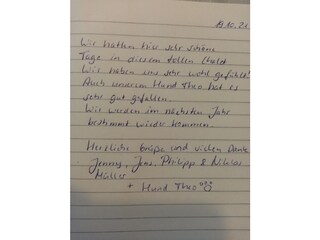 19.10.21
Wir hatten hier sehr schöne
Tage in diesem tollen Chalet
Wir haben uns sehr wohl gefühlt!
Auch unserem Hund Theo hat es
sehr gut gefallen.
Wir werden im nächsten Jahr
bestimmt wieder kommen.
Herzliche Grüße und vielen Dank
Jenny, Jens, Philipp & Nikolas
Müller
+ Hund Theo